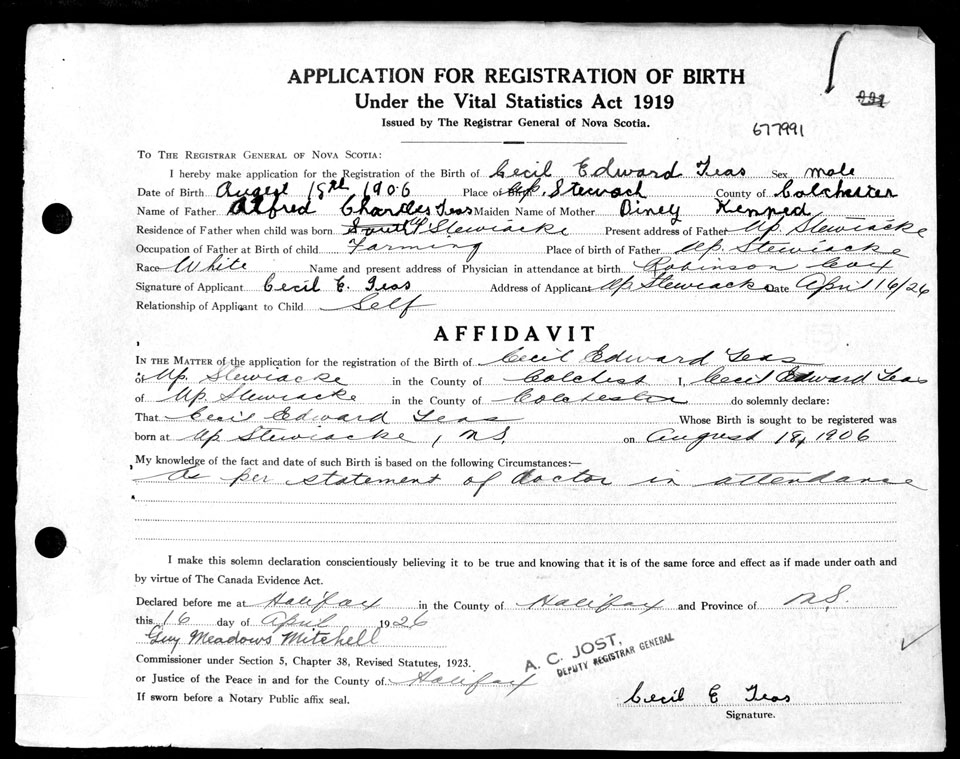 APPLICATION FOR REGISTRATION OF BIRTH
Under the Vital Statistics Act 1919
991
Issued by The Registrar General of Nova Scotia.
677991
TO THE REGISTRAR GENERAL OF NOVA SCOTIA:
I hereby make application for the Registration of the Birth of Cecil Edward Teas Sex male
Date of Birth August 18th 1906 Place of Birth Up. Stewack County of Colchester
Name of Father Alfred Charles Teas Maiden Name of Mother Diney Kenned
Residence of Father when child was born South Up Stewiacke Present address of Father Up. Stewiacke
Occupation of Father at Birth of child Farming Place of birth of Father Up. Stewiacke
Race White Name and present address of Physician in attendance at birth Robinson Cox
Signature of Applicant Cecil E. Teas Address of Applicant Up Stewiacke Date April 16/26
Relationship of Applicant to Child Self
AFFIDAVIT
IN THE MATTER of the application for the registration of the Birth of Cecil Edward Teas
of Up. Stewiacke in the County of Colchest I, Cecil Edward Teas
of Up. Stewiacke in the County of Colchester do solemnly declare:
That Cecil Edward Teas Whose Birth is sought to be registered was
born at Up Stewiacke, N.S. on August 18, 1906
My knowledge of the fact and date of such Birth is based on the following Circumstances:—
As per statement of doctor in attendance
I make this solemn declaration conscientiously believing it to be true and knowing that it is of the same force and effect as if made under oath and
by virtue of The Canada Evidence Act.
Declared before me at Halifax in the County of Halifax and Province of N.S.
this 16 day of April 1926
Guy Meadows Mitchell
Commissioner under Section 5, Chapter 38, Revised Statutes, 1923.
A. C. JOST,
DEPUTY REGISTRAR GENERAL
or Justice of the Peace in and for the County of Halifax
If sworn before a Notary Public affix seal.
Cecil E Teas
Signature.